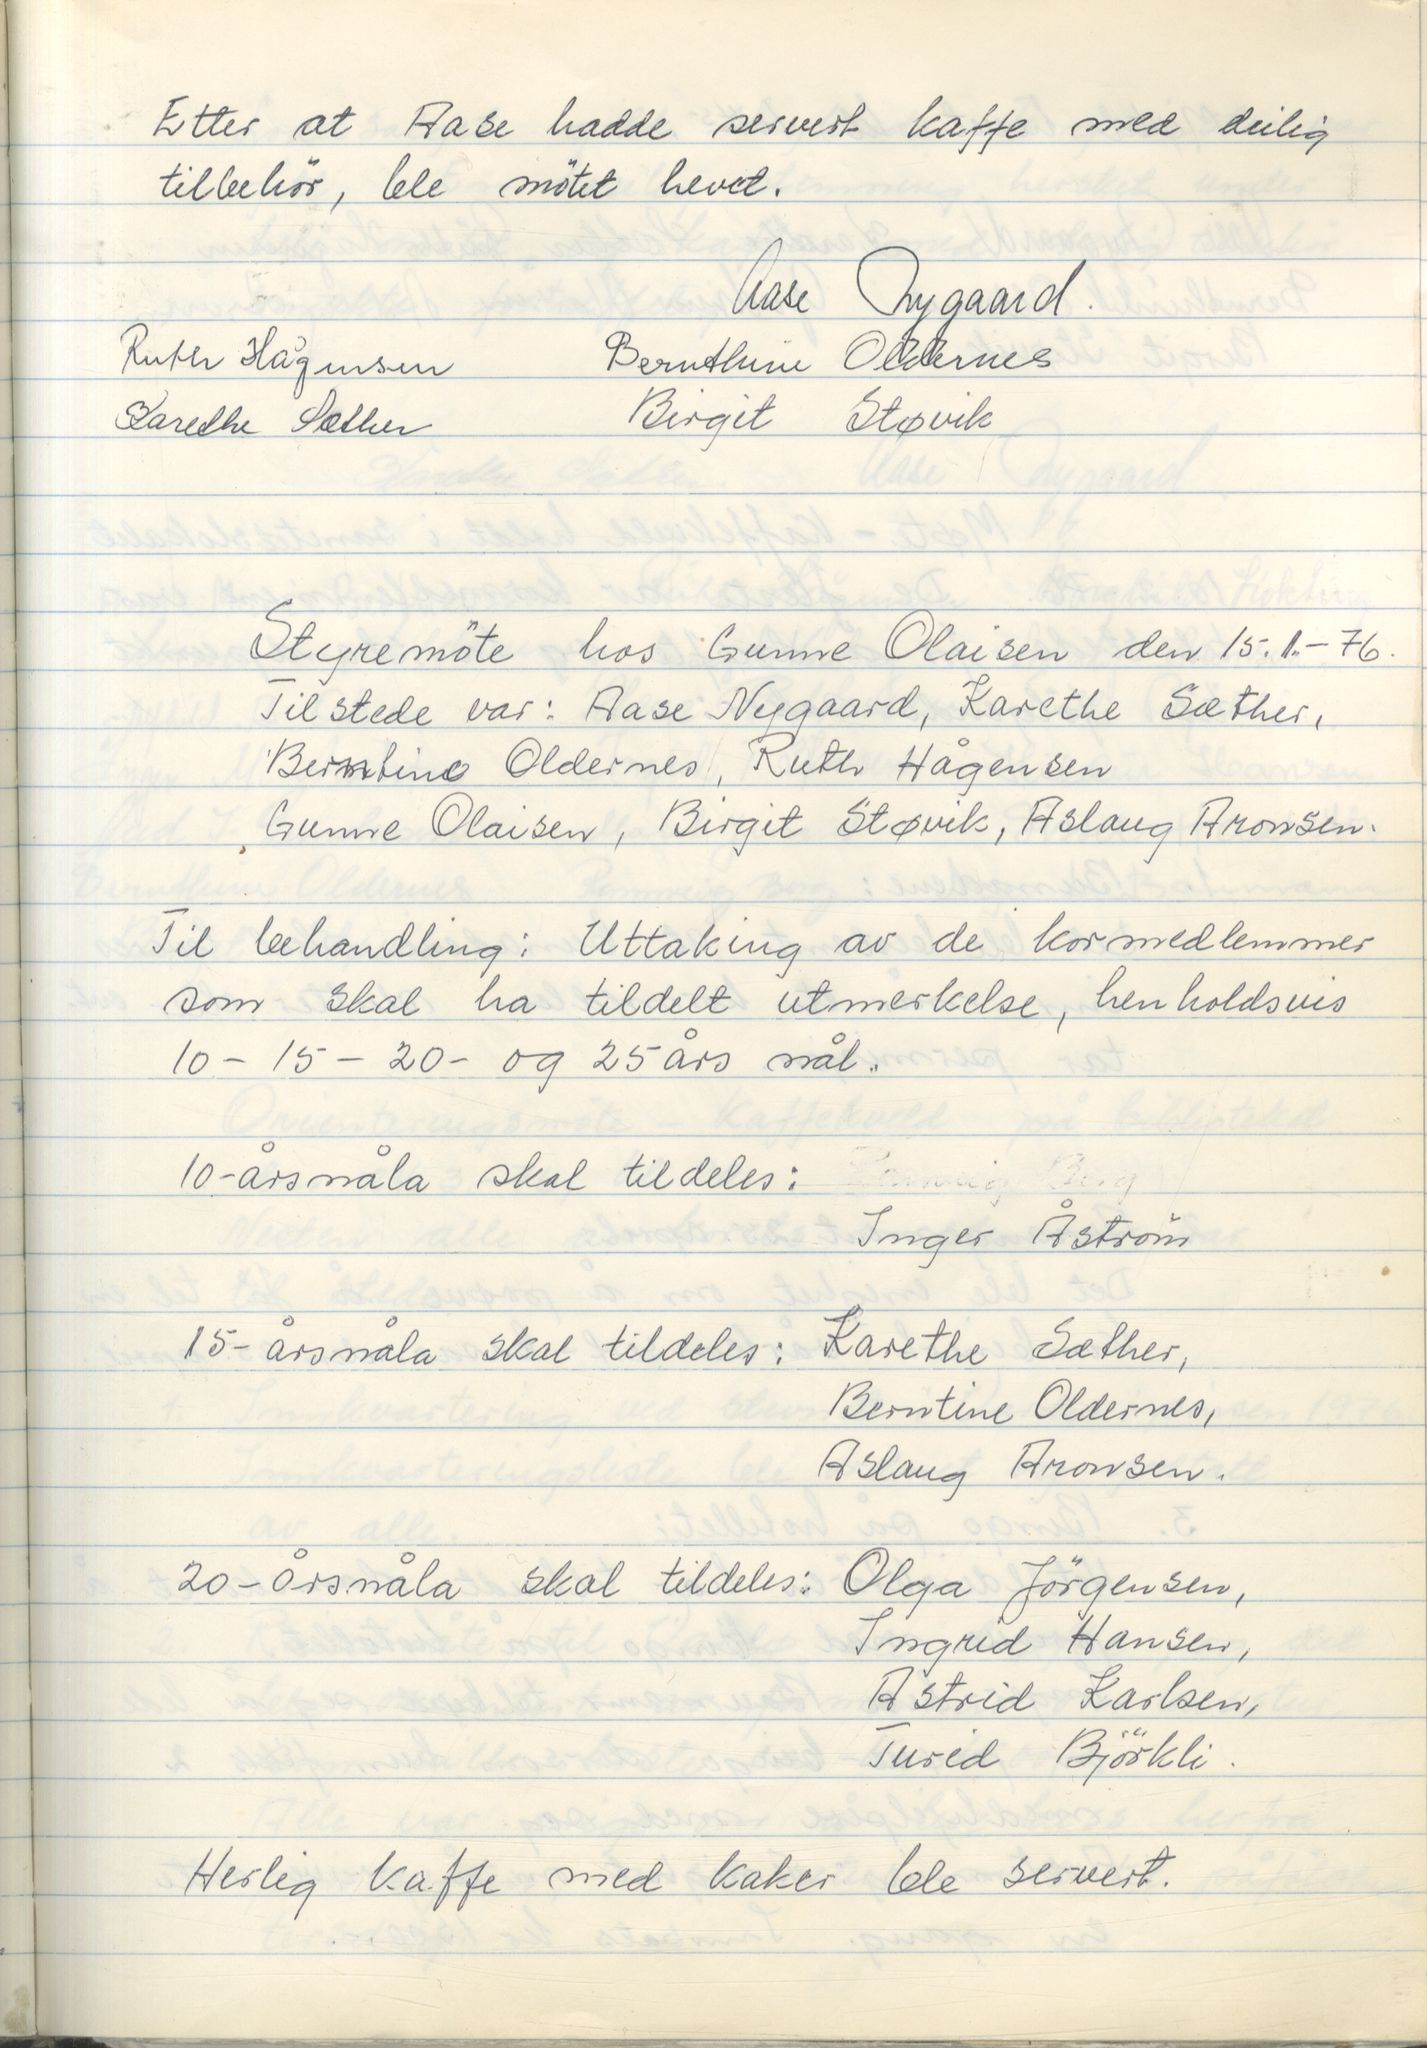 Etter at Aase hadde servert kaffe med deilig
tilbehör, ble mötet hevet.
Aase Nygaard.
Ruth Hågensen Bernthine Oldernes
Karethe Sæther Birgit Støvik
Styremöte hos Gunne Olaisen den 15.1.-76.
Tilstede var: Aase Nygaard, Karethe Sæther,
Berntine Oldernes, Ruth Hågensen
Gunne Olaisen, Birgit Støvik, Aslaug Aronsen.
Til behandling: Uttaking av de kormedlemmer
som skal ha tildelt utmerkelse, henholdsvis
10-15-20- og 25 års nål.
10-årsnåla skal tildeles:
Inger Åström
15-årsnåla skal tildeles: Karethe Sæther,
Berntine Oldernes,
Aslaug Aronsen.
20-årsnåla skal tildeles: Olga Jörgensen,
Ingrid Hansen,
Astrid Karlsen,
Turid Björkli.
Herlig kaffe med kaker ble servert.